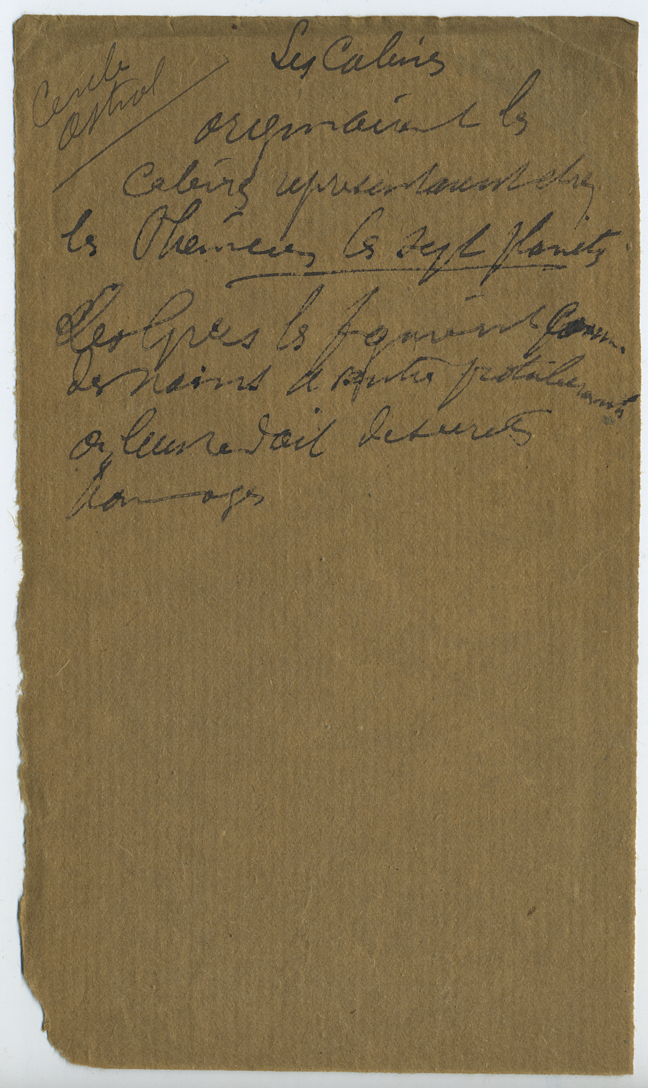 Cercle
Astral
Les Cabires
originairement les
Cabires representaient chez
les Phéniciens les sept planetes
Les Grecs les figuraient comme
des nains a ventre protuberants
on leur de secrets
homages